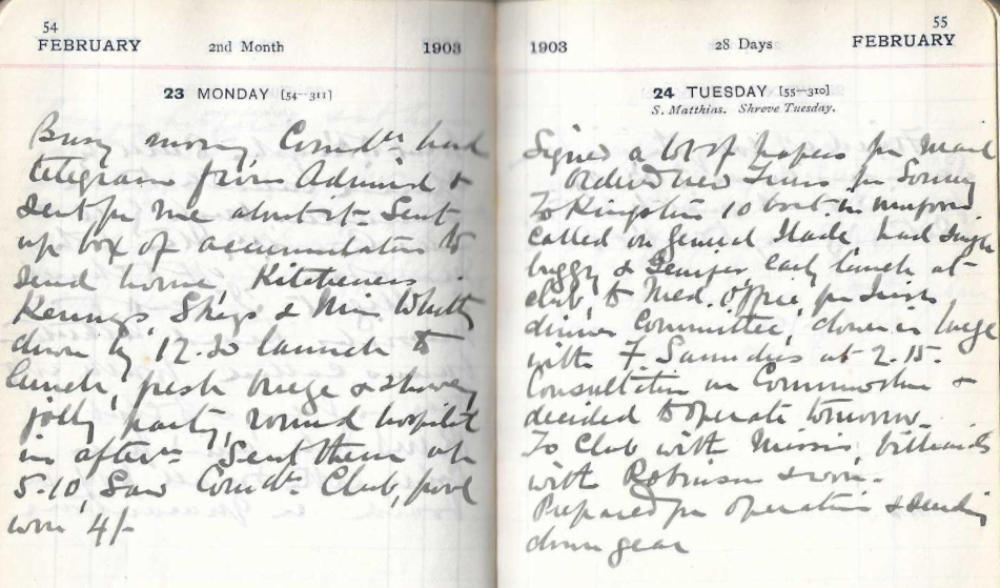 54
FEBRUARY 2nd Month 1903
23 MONDAY [54—311]
Busy morng, Comdre had
telegram from Admiral &
sent for me about it. Sent
up box of accumulators to
send home, Kitcheners
Skeys & Miss
down by 12.30 launch to
lunch, fresh breeze & showery
jolly party, round hospital
in aftern Sent them up
5.10, Saw Comdr Club, pool
won 4/-
55
1903 28 Days FEBRUARY
24 TUESDAY [55—310]
S. Matthias. Shrove Tuesday.
Signed a lot of papers for mail
ordered new for
To Kingston 10 boat in uniform
called on General Slade, had single
buggy & early lunch at
club, to Med. Office for Irish
dinner Committee, down in barge
with F. Saunders at 2.15.
Consultation on Commodore &
decided to operate tomorrow.
To Club with Missis, billiards
with Robinson & won.
Prepared for operation & sending
down gear